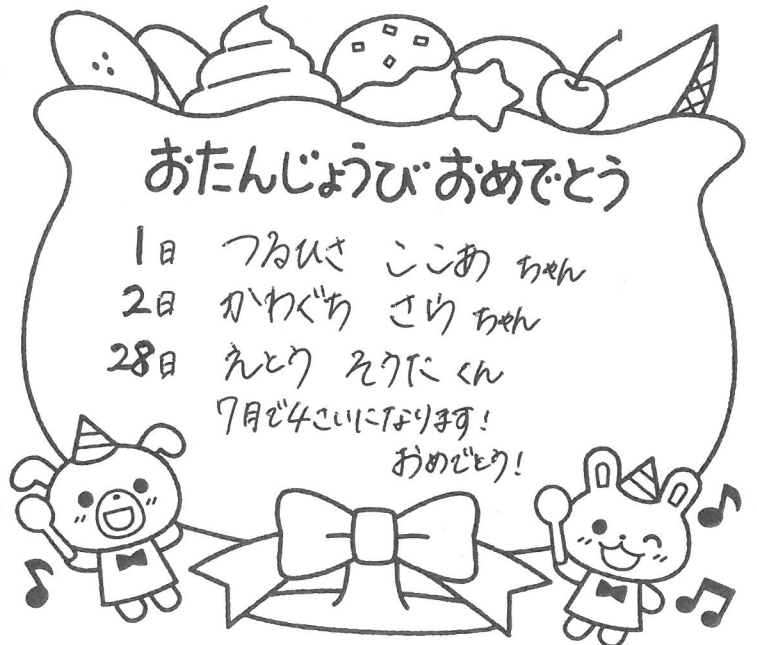 おたんじょうび おめでとう
1日 つるひさ ここあ ちゃん
2日 かわぐち さら ちゃん
28日 えとう そうた くん
7月で4さいになります!
おめでとう!